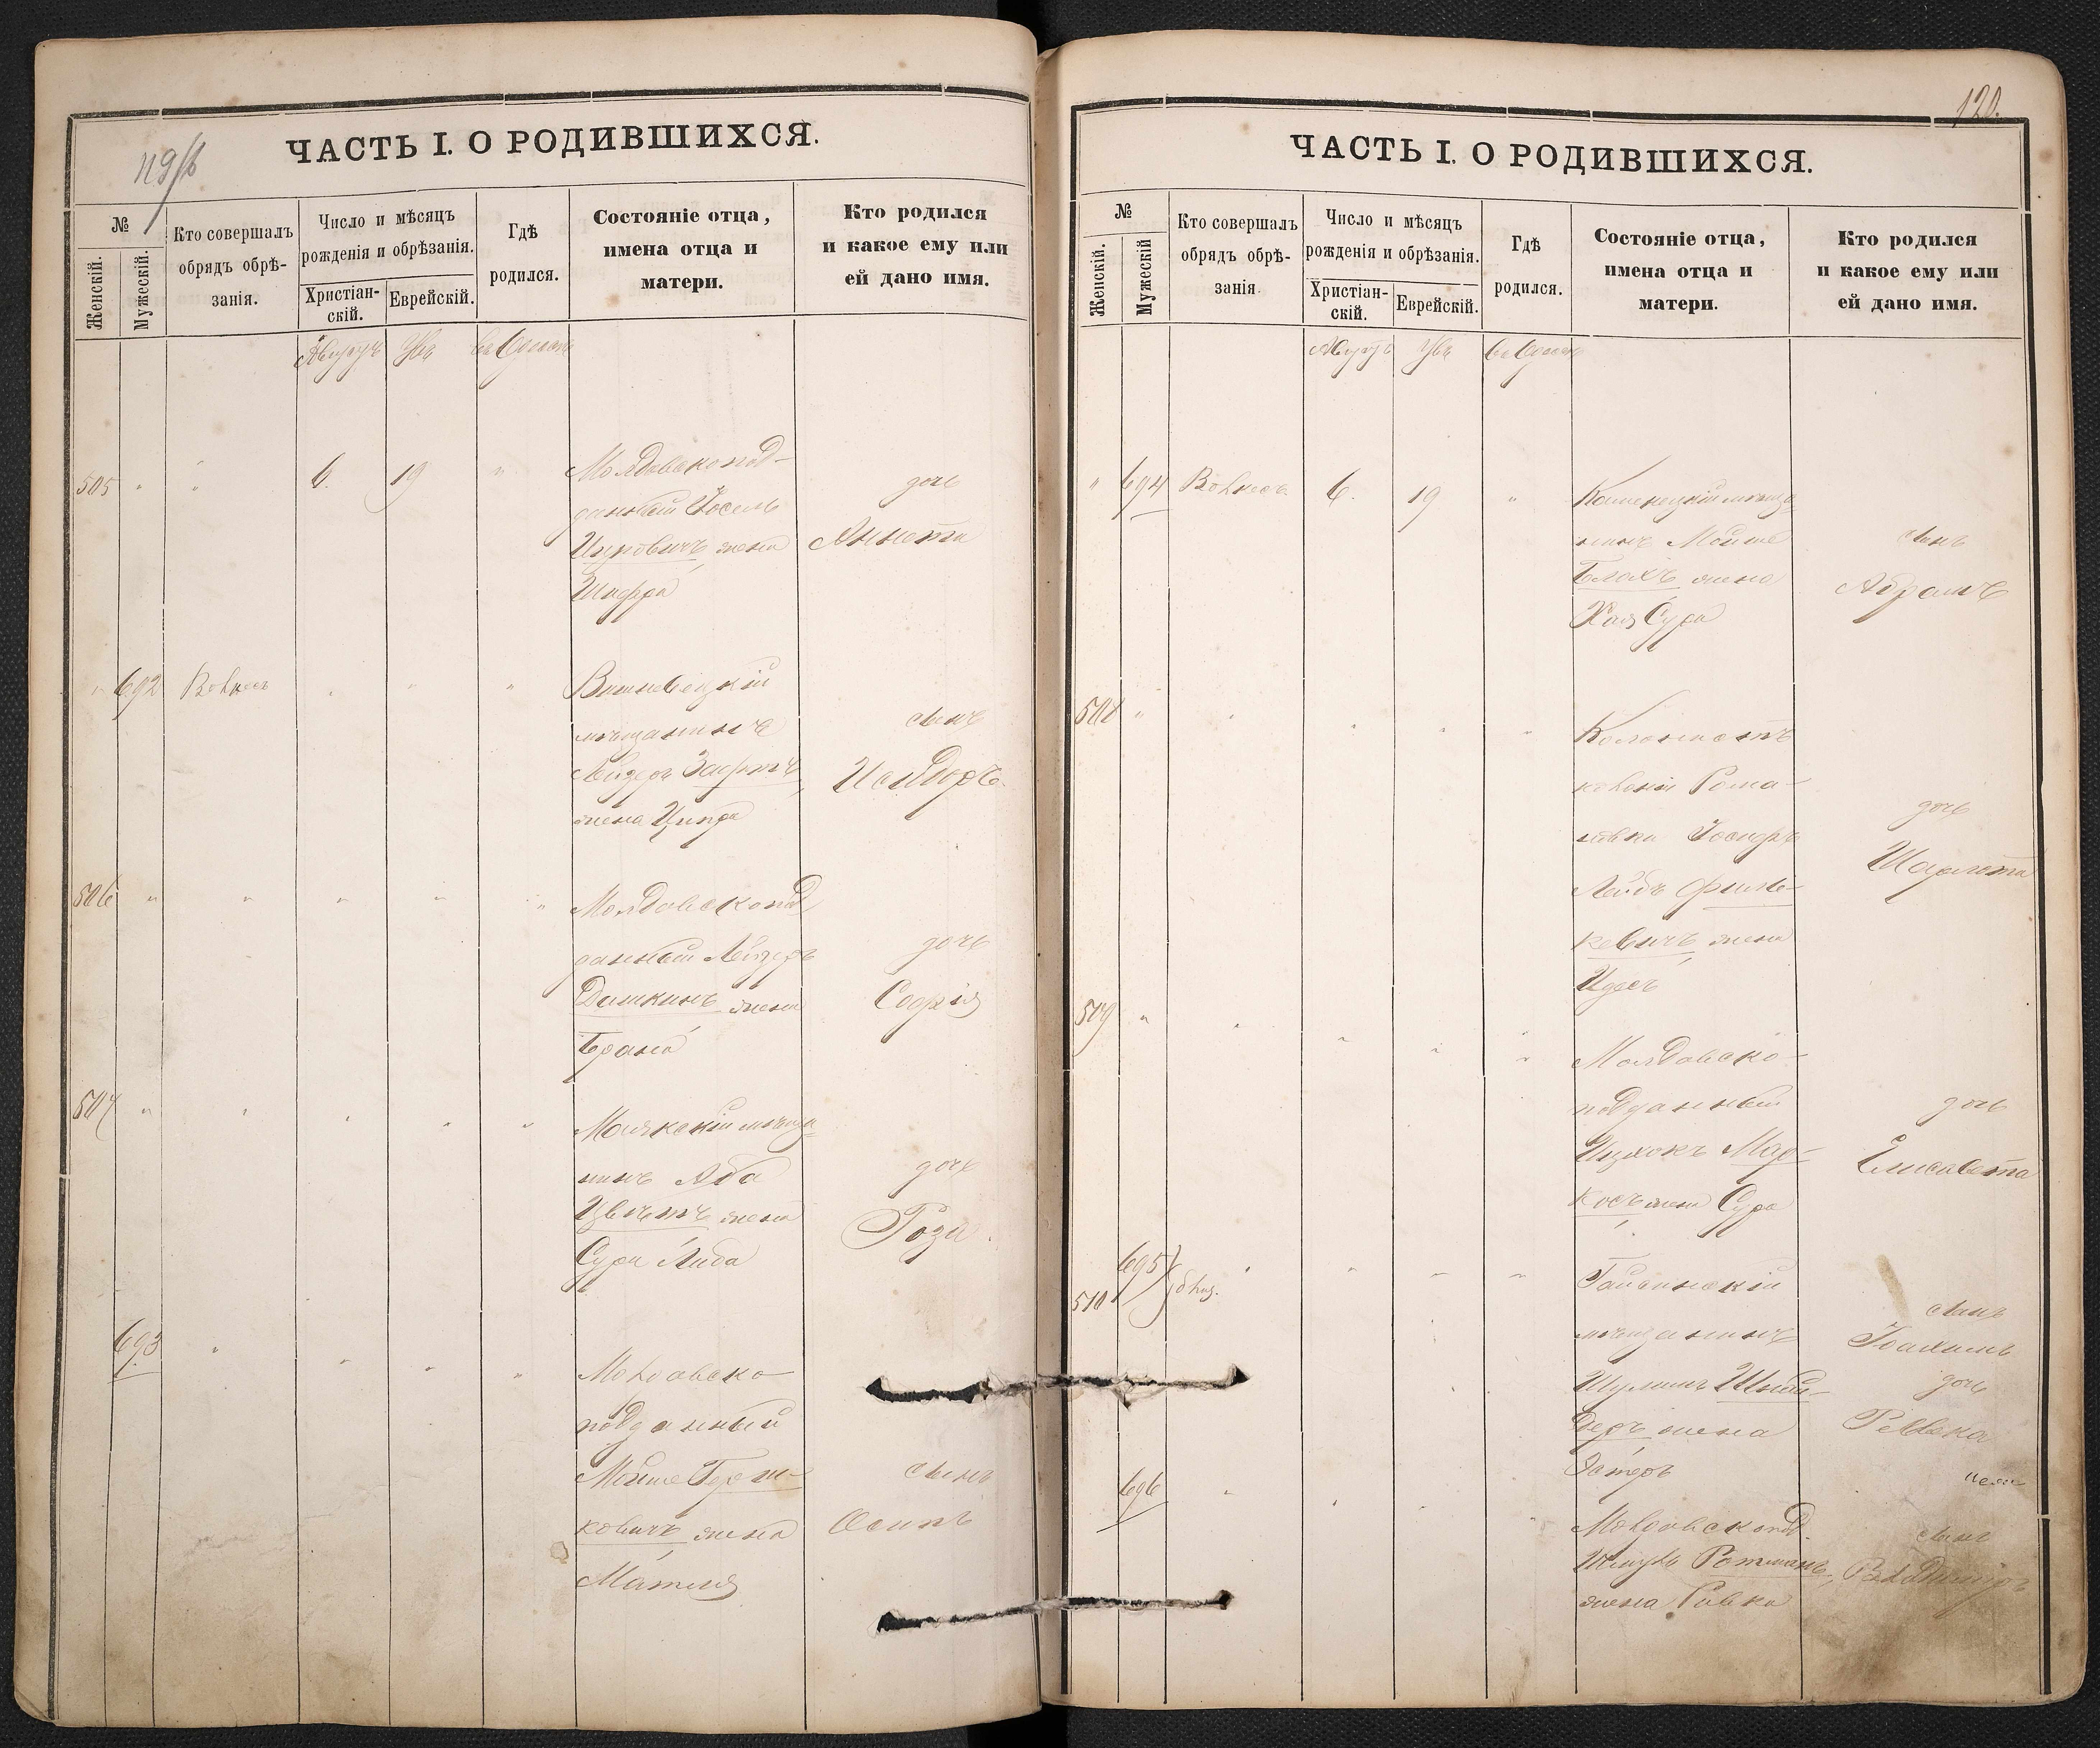 ЧАСТЬ I. О РОДИВШИХСЯ.
№
Женскій.
Мужескій.
Кто совершалъ
обрядъ обрѣ-
занія.
Число и мѣсяцъ
рожденія и обрѣзанія.
Христіан-
скій.
Еврейскій.
Гдѣ
родился.
Состояніе отца,
имена отца и
матери.
Кто родился
и какое ему или
ей дано имя.
Августъ
505 " " 6. 19 "
Молдавскопод-
данный Іосель
Ицковичъ жена
Шифра
дочь
Аннета
" 692
Вишневецкій
мѣщанинъ
Лейзеръ
жена Ципра
сынъ
Исидоръ.
506 " " " " "
Молдавскопод
данный Лейзеръ
Дашкинъ жена
Брана
дочь
Софія
507 "
Маякскій мѣща-
нинъ Аба
Цвѣтъ жена
Сура Либа
дочь
Роза.
693
Молдавско-
подданный
Мойше Герш-
ковичъ жена
Матля
сынъ
Осипъ
120.
ЧАСТЬ I. О РОДИВШИХСЯ.
№
Женскій.
Мужескій
Кто совершалъ
обрядъ обрѣ-
занія
Число и мѣсяцъ
рожденія и обрѣзанія.
Христіан-
скій.
Еврейскій.
Гдѣ
родился.
Состояніе отца,
имена отца и
матери.
Кто родился
и какое ему или
ей дано имя.
Августъ
" 694 6. 19 "
Каменецкій мѣща-
нинъ Мойше
Блахъ жена
Хая Сура
сынъ
Абрамъ
508 "
Колонистъ
колоніи Рома-
новки
Лейбъ Финь-
кевичъ жена
Идесъ
дочь
Шарлота
509 "
Молдавско-
подданный
Ицхокъ Мар-
косъ жена Сура
дочь
Елисавета
695
510
Гайсинскій
мѣщанинъ
Шулимъ Шней-
деръ жена
Эстеръ
сынъ
Іоахимъ
дочь
Ревека
696
Молдавскопод.
Ротманъ,
жена Ривка
сынъ
Владиміръ